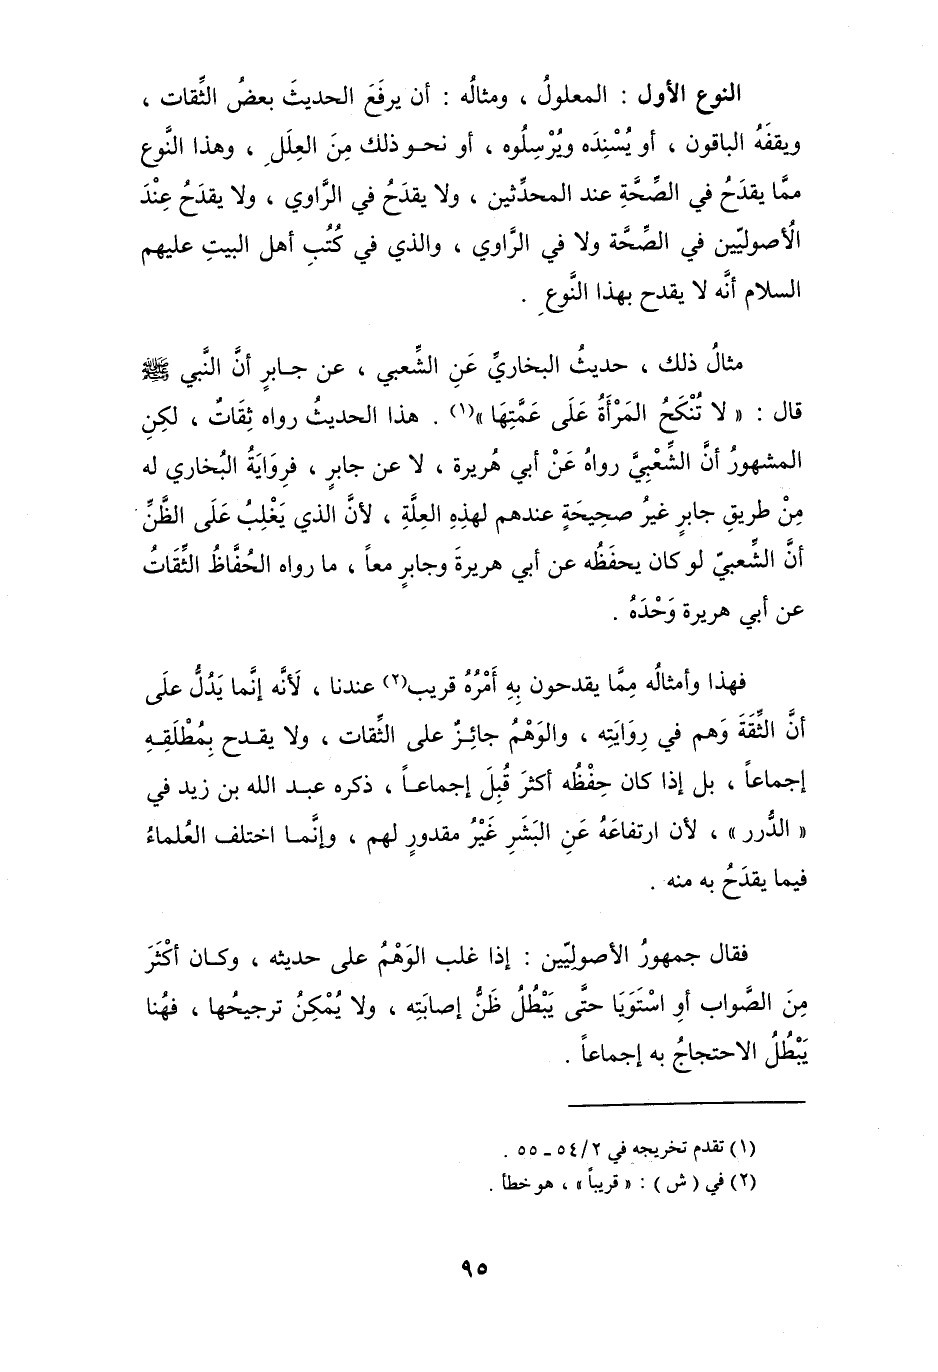 النوع الأول : المعلولُ ، ومثالُه : أن يرفَعَ الحديثَ بعضُ الثِّقات ،
ويقفَهُ الباقون ، أو يُسْنِدَه ويُرْسِلُوه ، أو نحـو ذلك مِنَ العِلَلِ ، وهذا النَّوع
ممَّا يقدَحُ في الصِّحَّةِ عند المحدِّثين ، ولا يقدَحُ في الرَّاوي ، ولا يقدَحُ عِنْدَ
الأُصوليّين في الصِّحَّة ولا في الرَّاوي ، والذي في كُتُبِ أهل البيتِ عليهم
السلام أنَّه لا يقدح بهذا النَّوعِ .
مثالُ ذلك ، حديثُ البخاريِّ عَنِ الشِّعبي ، عن جـابرٍ أنَّ النَّبي ﷺ
قال : « لا تُنْكَحُ المَرْأَةُ عَلَى عَمَّتِهَا »(١) . هذا الحديثُ رواه ثِقَاتٌ ، لكِنِ
المشهورُ أنَّ الشِّعْبِيَّ رواهُ عَنْ أبي هُريرة ، لا عن جابرٍ ، فرِوَايَةُ البُخاري له
مِنْ طريقِ جابرٍ غيرُ صحيحَةٍ عندهم لهذِهِ العِلَّةِ ، لأنَّ الذي يَغْلِبُ عَلَى الظَّنِّ
أنَّ الشِّعبيّ لو كان يحفَظُه عن أبي هريرةَ وجابرٍ معاً ، ما رواه الحُفَّاظُ الثِّقَاتُ
عن أبي هريرة وَحْدَهُ .
فهذا وأمثالُه مِمَّا يقدحون بِهِ أَمْرُهُ قريب(٢) عندنا ، لَأنَّه إنَّما يَدُلُّ علَى
أنَّ الثِّقَةَ وَهم في رِوَايَتِه ، والوَهْمُ جائِـزٌ على الثِّقات ، ولا يقـدح بِمُطْلَقِـهِ
إجماعاً ، بل إذا كان حِفْظُه أكثرَ قُبِلَ إجماعـاً ، ذكره عبـد الله بن زيد في
« الدُّرر » ، لأن ارتفاعَهُ عَنِ البَشَرِ غَيْرُ مقدورٍ لهم ، وإنَّمـا اختلف العُلماءُ
فيما يقدَحُ به منه .
فقال جمهورُ الأصولِيّين : إذا غلب الوَهْمُ على حديثه ، وكـان أكْثَرَ
مِنَ الصَّواب أوِ اسْتَوَيَا حتَّى يَبْطُلُ ظَنُّ إصابَتِه ، ولا يُمْكِنُ ترجيحُها ، فهُنا
يَبْطُلُ الاحتجاجُ به إجماعاً .
(١) تقدم تخريجه في ٢/ ٥٤ ـ ٥٥ .
(٢) في ( ش ) : « قريباً » ، هو خطأ .
٩٥